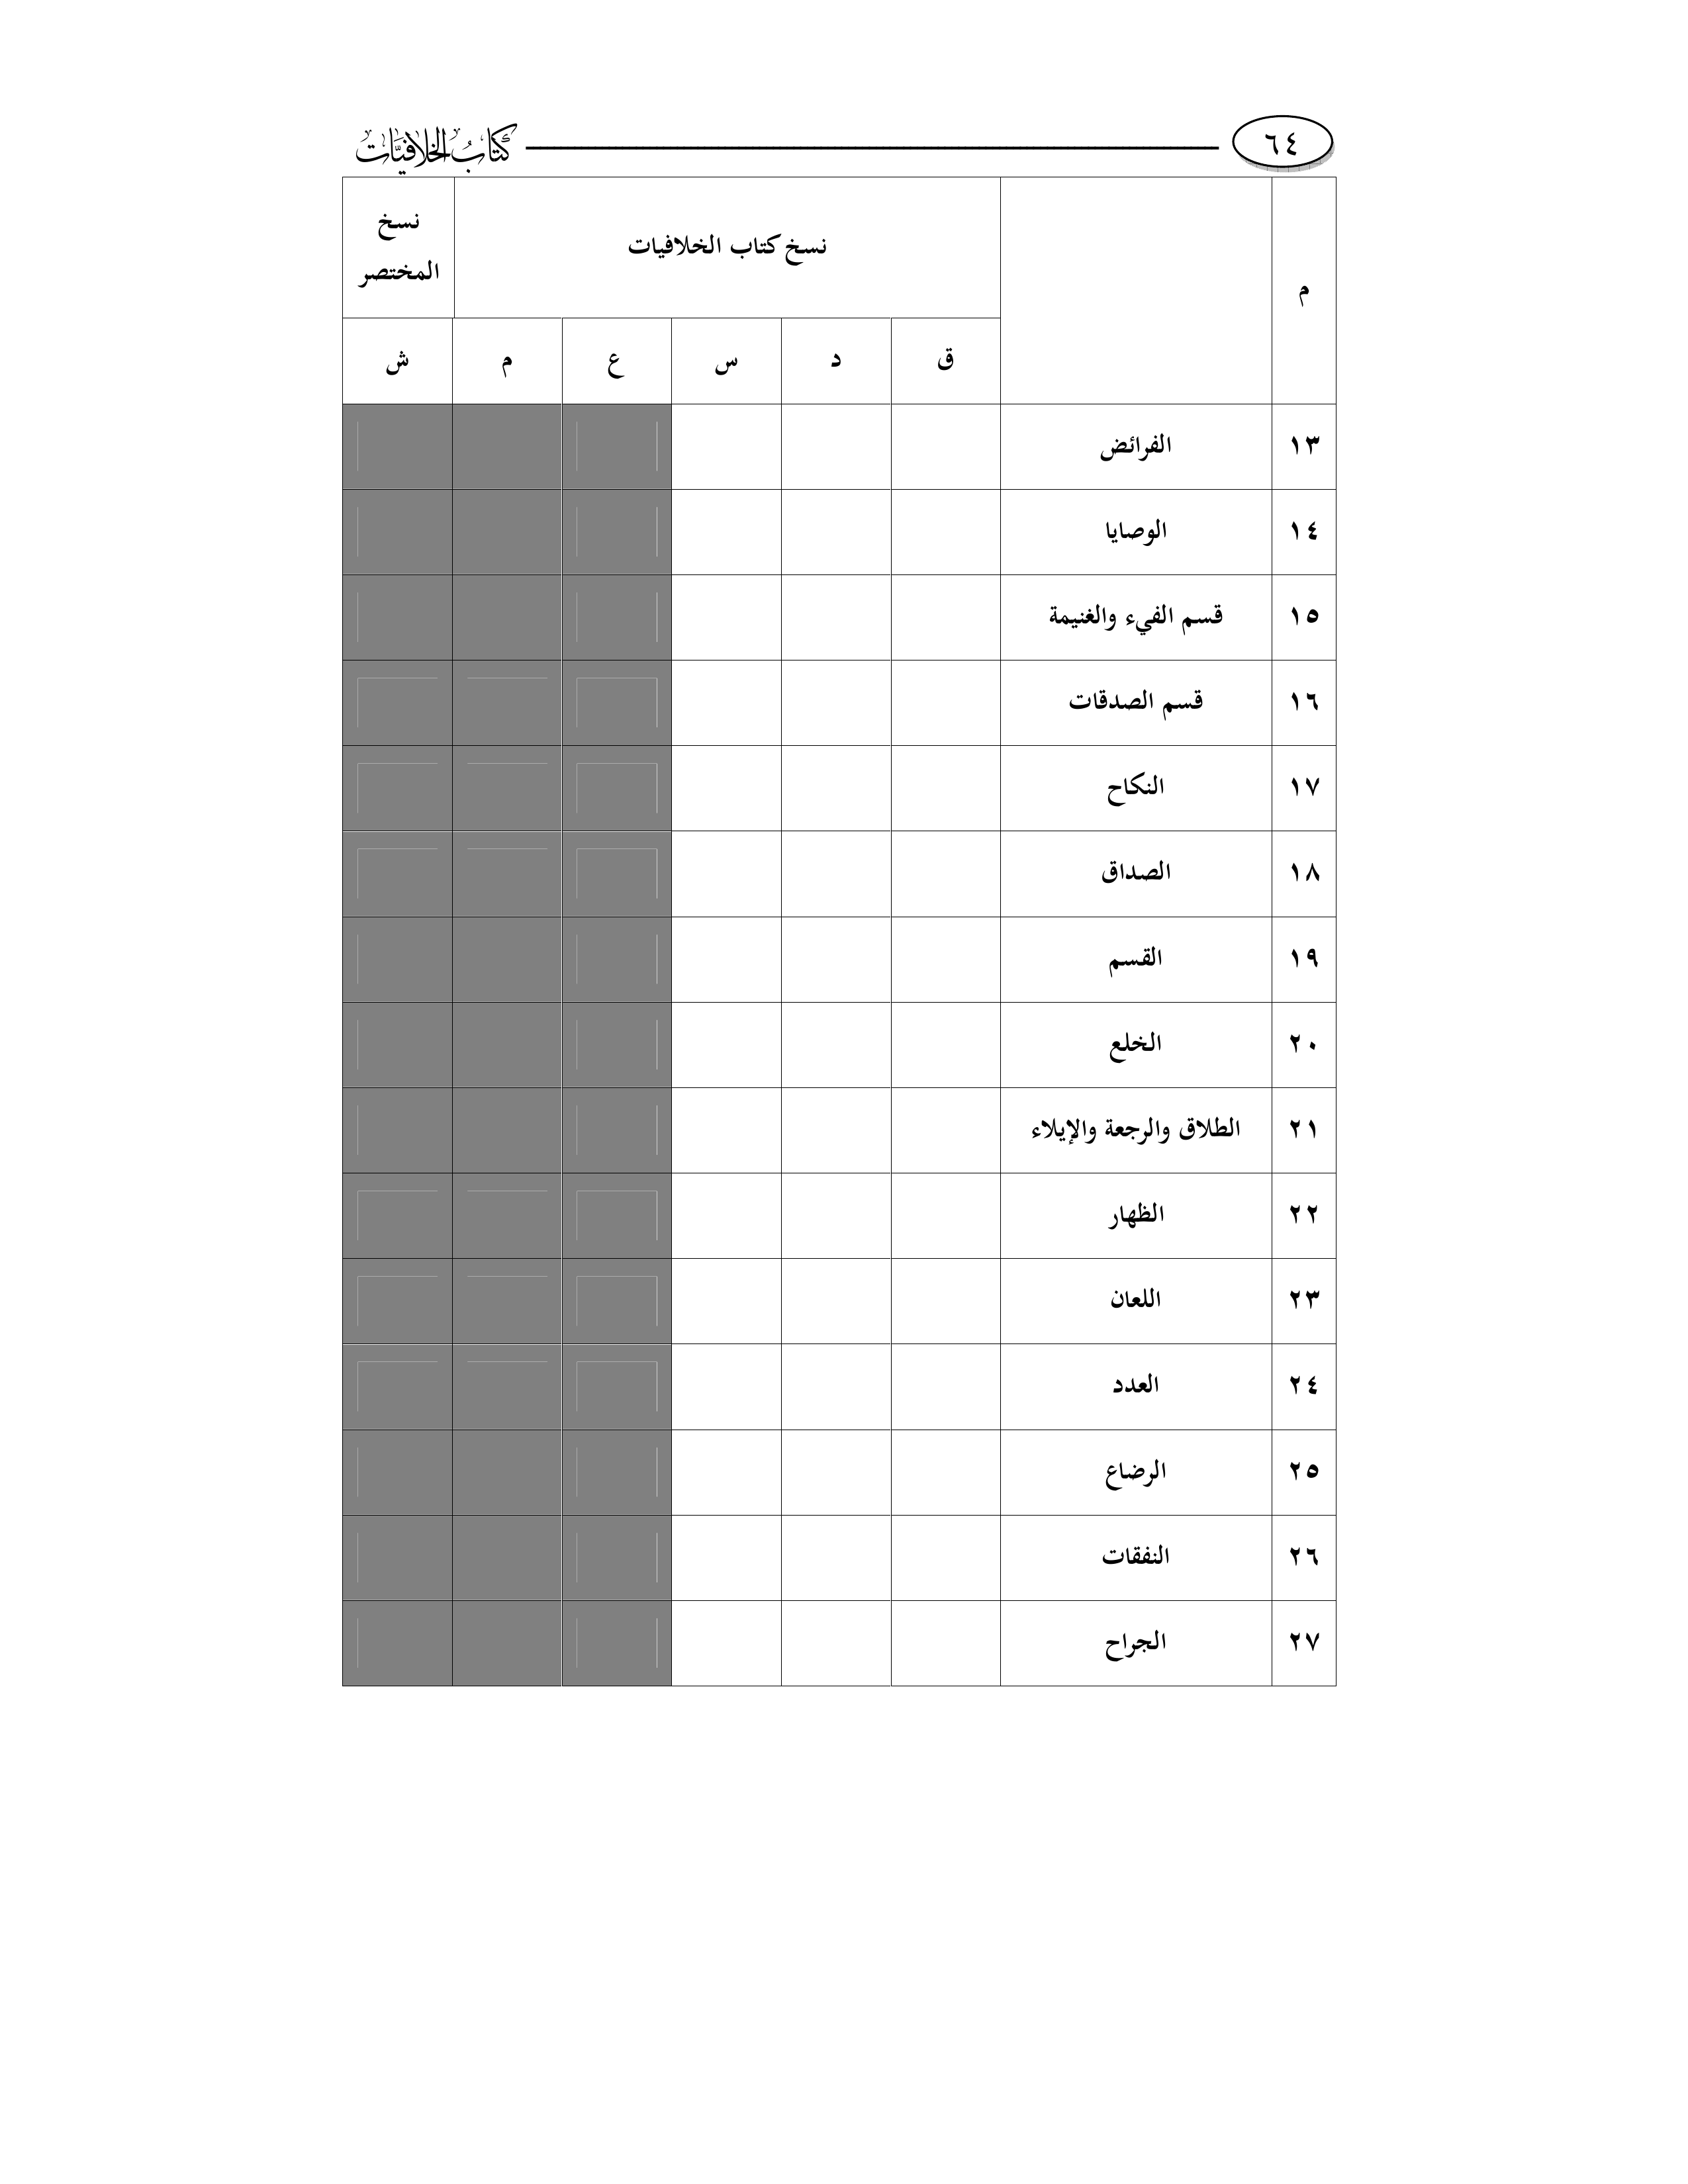 ٦٤
كتاب الخلافيات
م
نسخ كتاب الخلافيات
نسخ
المختصر
ق د س ع م ش
١٣ الفرائض
١٤ الوصايا
١٥ قسم الفيء والغنيمة
١٦ قسم الصدقات
١٧ النكاح
١٨ الصداق
١٩ القسم
٢٠ الخلع
٢١ الطلاق والرجعة والإيلاء
٢٢ الظهار
٢٣ اللعان
٢٤ العدد
٢٥ الرضاع
٢٦ النفقات
٢٧ الجراح